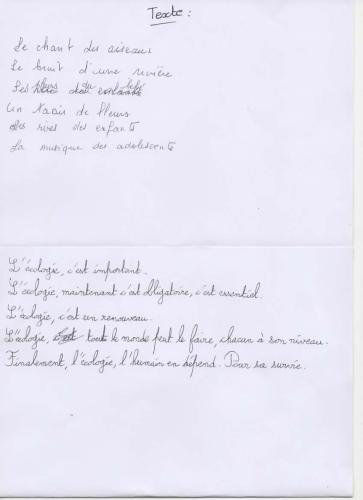 Texte :
Le chant des oiseaux
Le bruit d'une rivière
Les pleurs du bébé
Un de fleurs
Les rires des enfants
La musique des adolescents
L'écologie, c'est important.
L'écologie, maintenant c'est obligatoire, c'est essentiel.
L'écologie, c'est un renouveau.
L'écologie, tout le monde peut le faire, chacun à son niveau.
Finalement, l'écologie, l'humain en dépend. Pour sa survie.